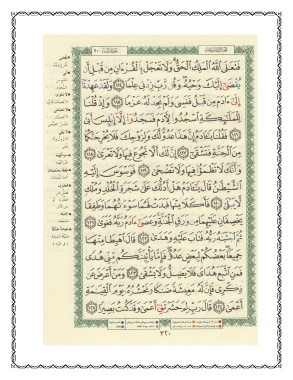 فَتَعَٰلَى ٱللَّهُ ٱلْمَلِكُ ٱلْحَقُّ وَلَا تَعْجَلْ بِٱلْقُرْءَانِ مِن قَبْلِ أَن
يُقْضَىٰٓ إِلَيْكَ وَحْيُهُۥ وَقُل رَّبِّ زِدْنِى عِلْمًا ١١٤ وَلَقَدْ عَهِدْنَآ
إِلَىٰٓ ءَادَمَ مِن قَبْلُ فَنَسِىَ وَلَمْ نَجِدْ لَهُۥ عَزْمًا ١١٥ وَإِذْ قُلْنَا
لِلْمَلَٰٓئِكَةِ ٱسْجُدُوا۟ لِءَادَمَ فَسَجَدُوٓا۟ إِلَّآ إِبْلِيسَ أَبَىٰ
١١٦ فَقُلْنَا يَٰٓـَٔادَمُ إِنَّ هَٰذَا عَدُوٌّ لَّكَ وَلِزَوْجِكَ فَلَا يُخْرِجَنَّكُمَا
مِنَ ٱلْجَنَّةِ فَتَشْقَىٰٓ ١١٧ إِنَّ لَكَ أَلَّا تَجُوعَ فِيهَا وَلَا تَعْرَىٰ ١١٨
وَأَنَّكَ لَا تَظْمَؤُا۟ فِيهَا وَلَا تَضْحَىٰ ١١٩ فَوَسْوَسَ إِلَيْهِ
ٱلشَّيْطَٰنُ قَالَ يَٰٓـَٔادَمُ هَلْ أَدُلُّكَ عَلَىٰ شَجَرَةِ ٱلْخُلْدِ وَمُلْكٍ
لَّا يَبْلَىٰ ١٢٠ فَأَكَلَا مِنْهَا فَبَدَتْ لَهُمَا سَوْءَٰتُهُمَا وَطَفِقَا
يَخْصِفَانِ عَلَيْهِمَا مِن وَرَقِ ٱلْجَنَّةِ وَعَصَىٰٓ ءَادَمُ رَبَّهُۥ فَغَوَىٰ ١٢١
ثُمَّ ٱجْتَبَٰهُ رَبُّهُۥ فَتَابَ عَلَيْهِ وَهَدَىٰ ١٢٢ قَالَ ٱهْبِطَا مِنْهَا
جَمِيعًۢا بَعْضُكُمْ لِبَعْضٍ عَدُوٌّ فَإِمَّا يَأْتِيَنَّكُم مِّنِّى هُدًى
فَمَنِ ٱتَّبَعَ هُدَاىَ فَلَا يَضِلُّ وَلَا يَشْقَىٰ ١٢٣ وَمَنْ أَعْرَضَ عَن
ذِكْرِى فَإِنَّ لَهُۥ مَعِيشَةً ضَنكًا وَنَحْشُرُهُۥ يَوْمَ ٱلْقِيَٰمَةِ
أَعْمَىٰ ١٢٤ قَالَ رَبِّ لِمَ حَشَرْتَنِىٓ أَعْمَىٰ وَقَدْ كُنتُ بَصِيرًا ١٢٥
٣٢٠